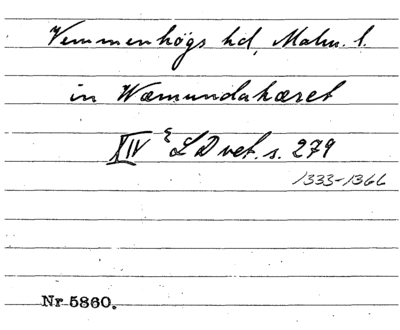 Vemmenhögs hd, Malm. l.
in Wæmundahæret
XIV LD vet. s. 279
1333-1366
Nr 5860.